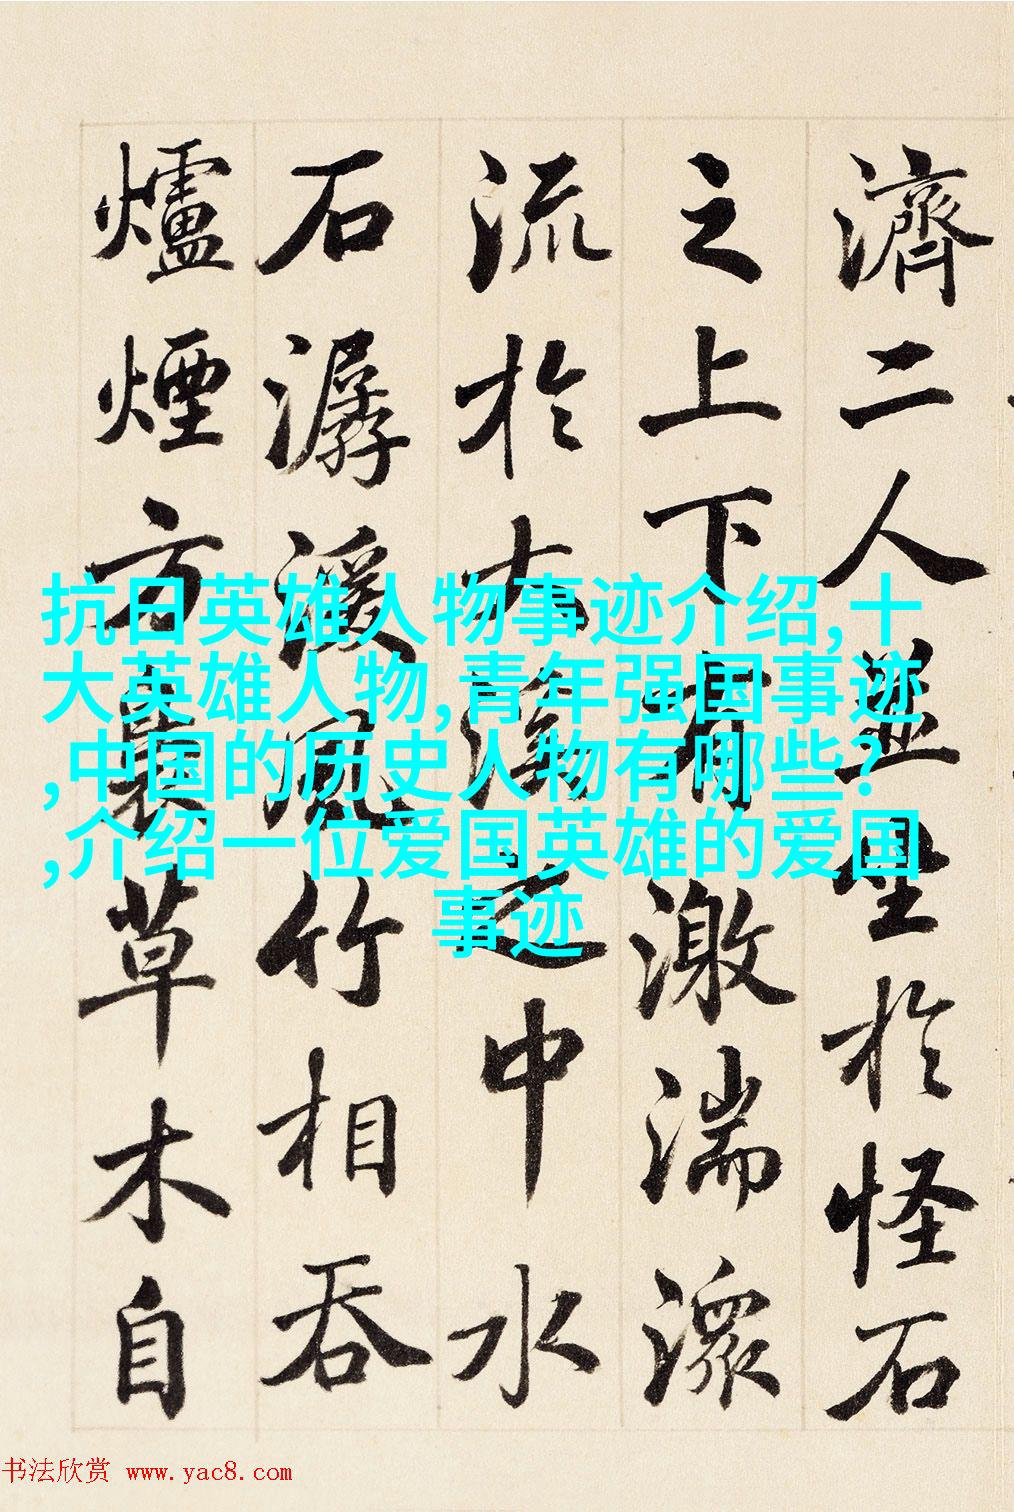 濟二人並坐於怪石
之上下有激湍潨
流於大溪之中水
石潺湲風竹相吞
爐煙方裊草木自
抗日英雄人物事迹介绍,十
大英雄人物,青年强国事迹
,中国的历史人物有哪些?
,介绍一位爱国英雄的爱国
事迹
书法欣赏 www.yac8.com